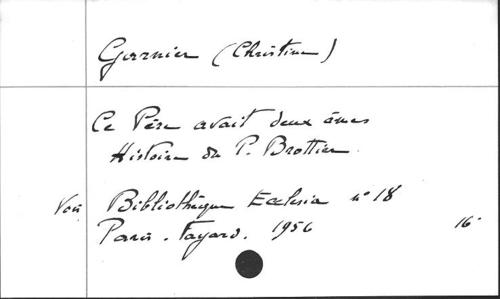 Garnier (Christine)
Ce Père avait deux âmes
Histoire du P. Brottier
Voir Bibliothèque Ecclesia n° 18
Paris. Fayard. 1956 16°